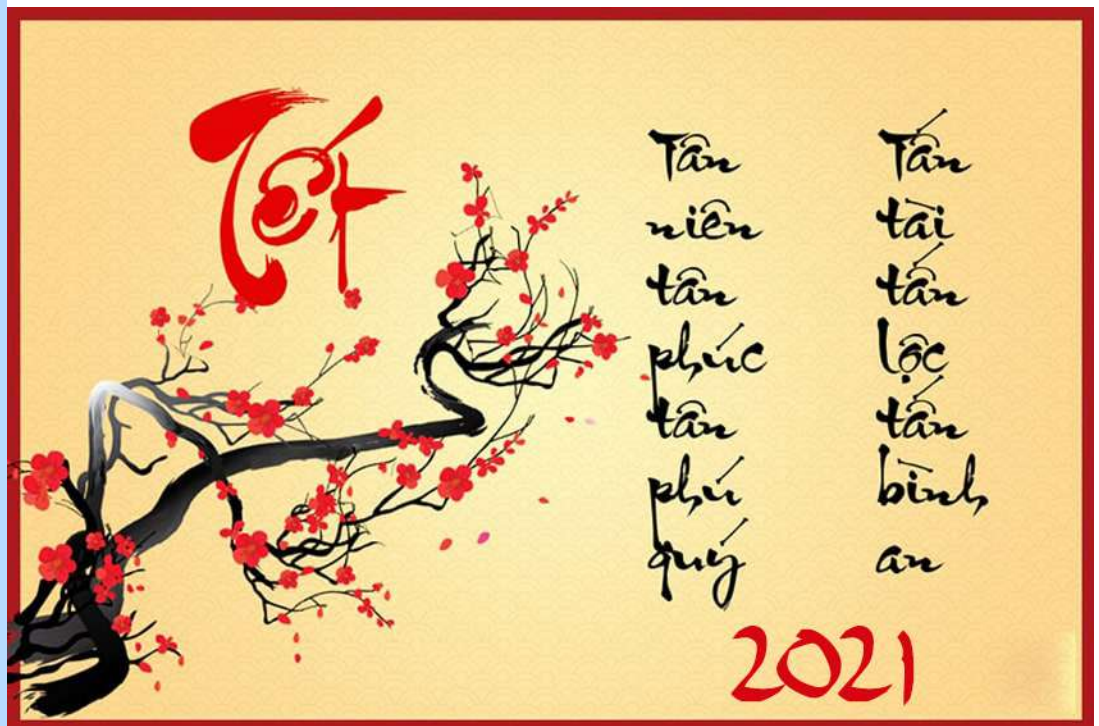 Tết
Tân
niên
tân
phúc
tân
phú
quý
Tấn
tài
tấn
lộc
tấn
bình
an
2021